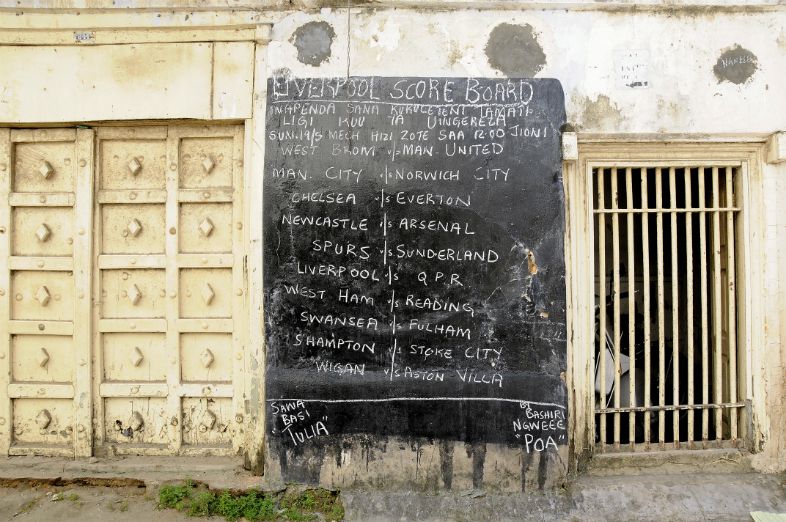 LIVERPOOL SCORE BOARD
LIGI KUU YA UINGEREZA
MECH HIZI ZOTE SAA 12:00 JIONI
WEST BROM v/s MAN. UNITED
MAN. CITY v/s NORWICH CITY
CHELSEA v/s EVERTON
NEWCASTLE v/s ARSENAL
SPURS v/s SUNDERLAND
LIVERPOOL v/s Q.P.R.
WEST HAM v/s READING
SWANSEA v/s FULHAM
S'HAMPTON v/s STOKE CITY
WIGAN v/s ASTON VILLA
SAWA
BASI
"TULIA"
BY
BASHIRI
NGWEEE
"POA"